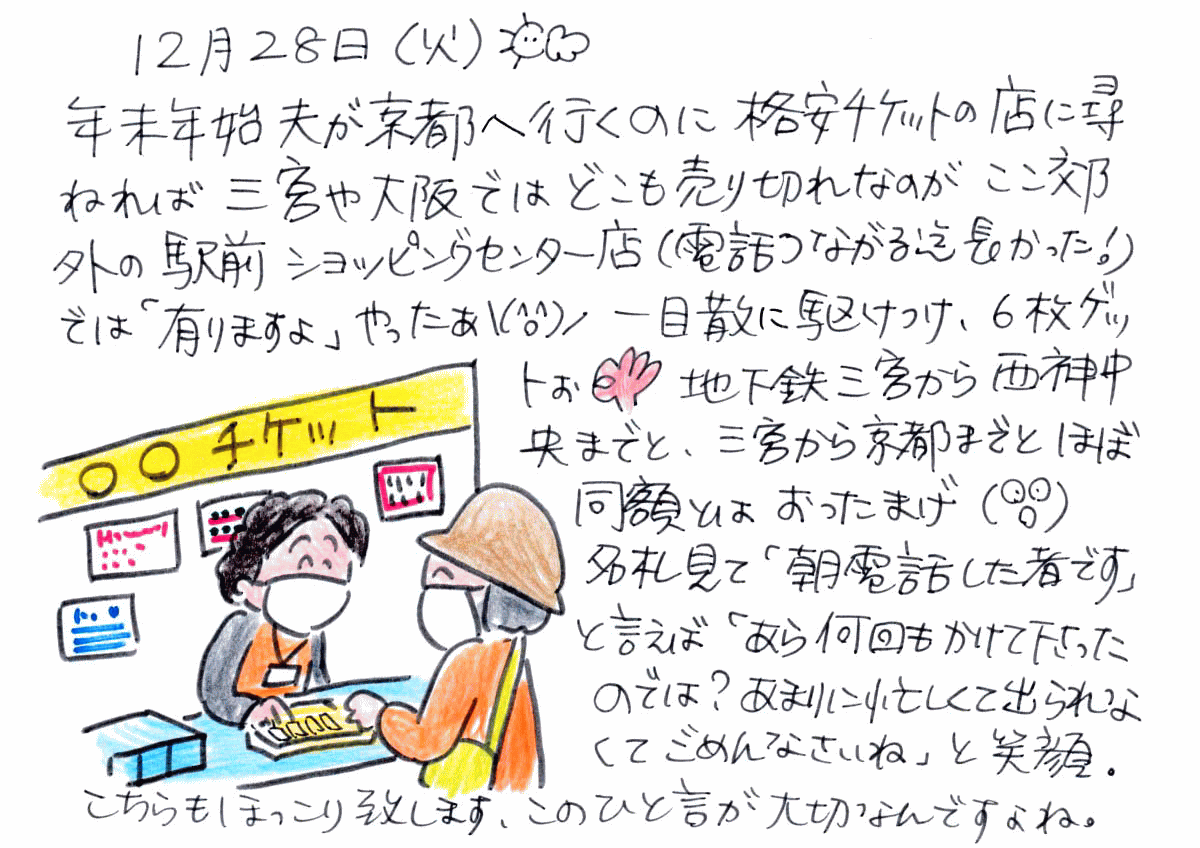 12月28日(火)
年末年始 夫が京都へ行くのに 格安チケットの店に尋
ねれば 三宮や大阪ではどこも売り切れなのが ここ郊
外の駅前ショッピングセンター店(電話つながる迄長かった!)
では「有りますよ」やったぁ\(^o^)/ 一目散に駆けつけ、6枚ゲッ
トぉ 地下鉄三宮から西神中
央までと、三宮から京都までとほぼ
同額とはおったまげ
名札見て「朝電話した者です」
と言えば「あら何回もかけて下さった
のでは?あまりに忙しくて出られな
くてごめんなさいね」と笑顔.
こちらもほっこり致します、このひと言が大切なんですよね。
○○チケット